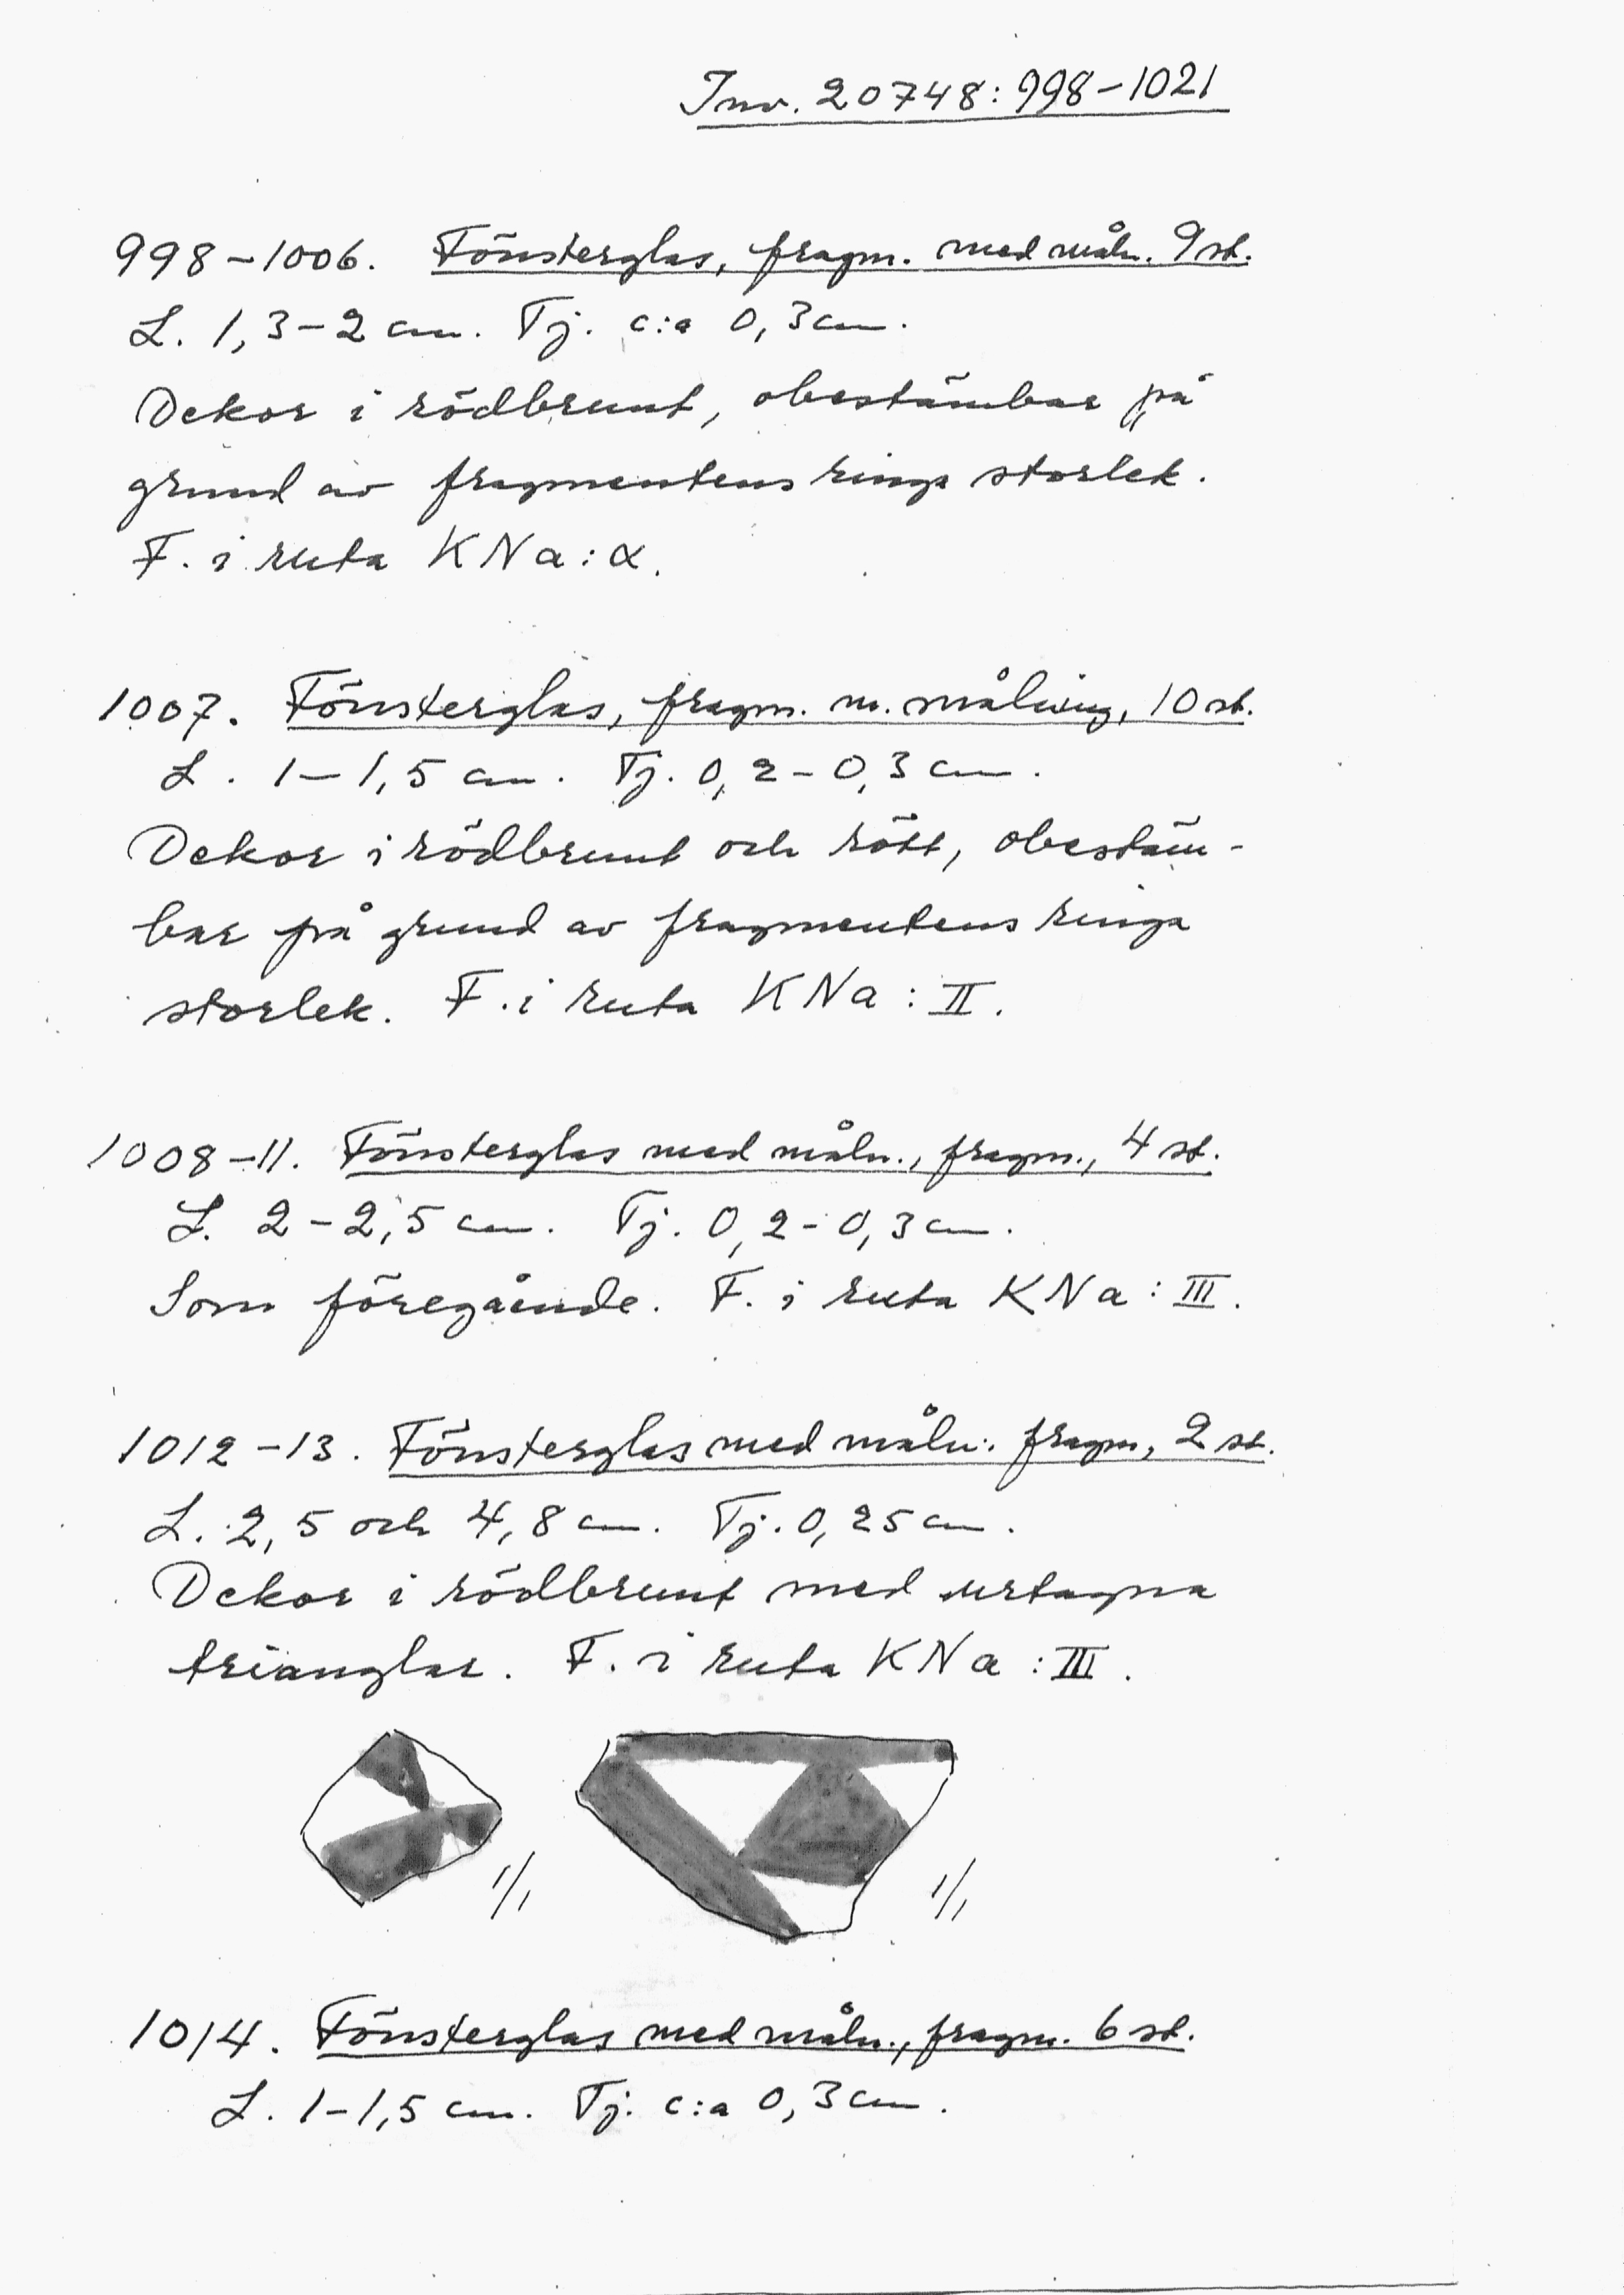 Inv. 20748:998-1021
998-1006. Fönsterglas, fragm. med måln. 9 st.
L. 1,3-2 cm. Tj. c:a 0,3 cm.
Dekor i rödbrunt, obestämbar på
grund av fragmentens ringa storlek.
F. i ruta KNa:α.
1007. Fönsterglas, fragm. m. målning, 10 st.
L. 1-1,5 cm. Tj. 0,2-0,3 cm.
Dekor i rödbrunt och rött, obestäm-
bar på grund av fragmentens ringa
storlek. F. i ruta KNa:II.
1008-11. Fönsterglas med måln., fragm., 4 st.
L. 2-2,5 cm. Tj. 0,2-0,3 cm.
Som föregående. F. i ruta KNa:III.
1012-13. Fönsterglas med måln. fragm, 2 st.
L. 2,5 och 4,8 cm. Tj. 0,25 cm.
Dekor i rödbrunt med urtagna
trianglar. F. i ruta KNa:III.
1/1 1/1
1014. Fönsterglas med måln., fragm. 6 st.
L. 1-1,5 cm. Tj: c:a 0,3 cm.